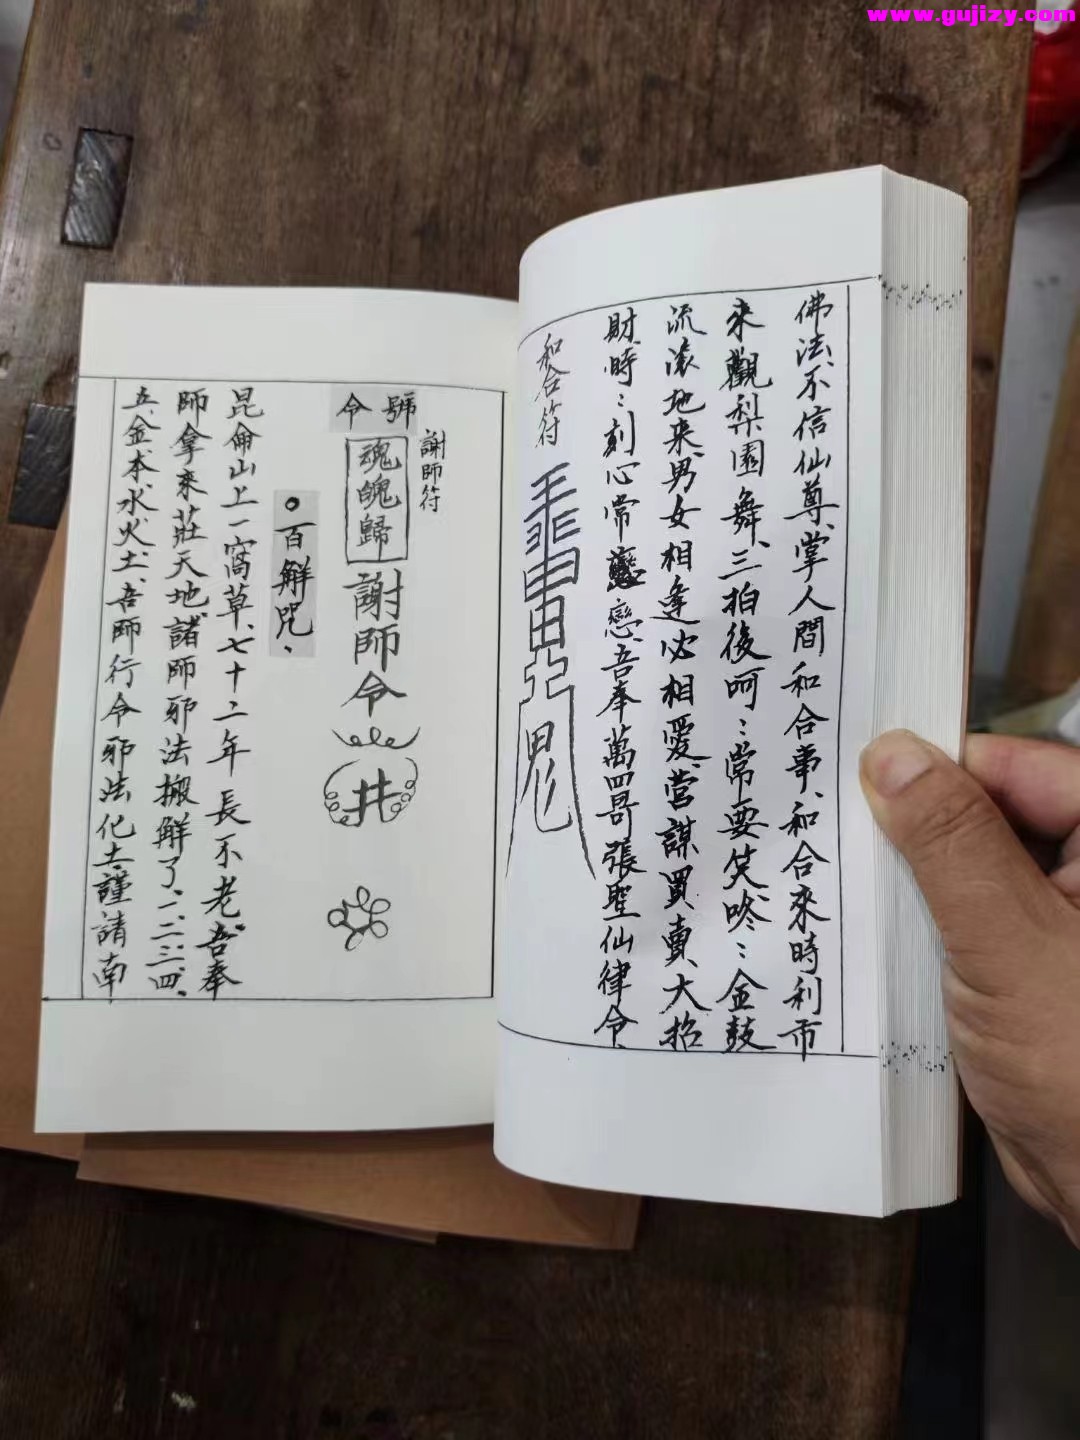 www.gujizy.com
佛法、不信仙尊、掌人間和合事、和合來時利市
來觀梨園舞、三拍後呵：常要笑、咚：金鼓
流滾地來、男女相逢必相愛、营謀買賣、大招
財、時：刻心常戀、吾奉萬四哥張聖仙律令、
和合符
鬼
謝師符
號令
魂魄歸
謝師令
井
○百解咒、
昆侖山上一窩草、七十二年長不老、吾奉
師拿來莊天地、諸師邪法搬解了、一、二、三、四、
五、金、木、水、火、土、吾師行令邪法化去、謹請南